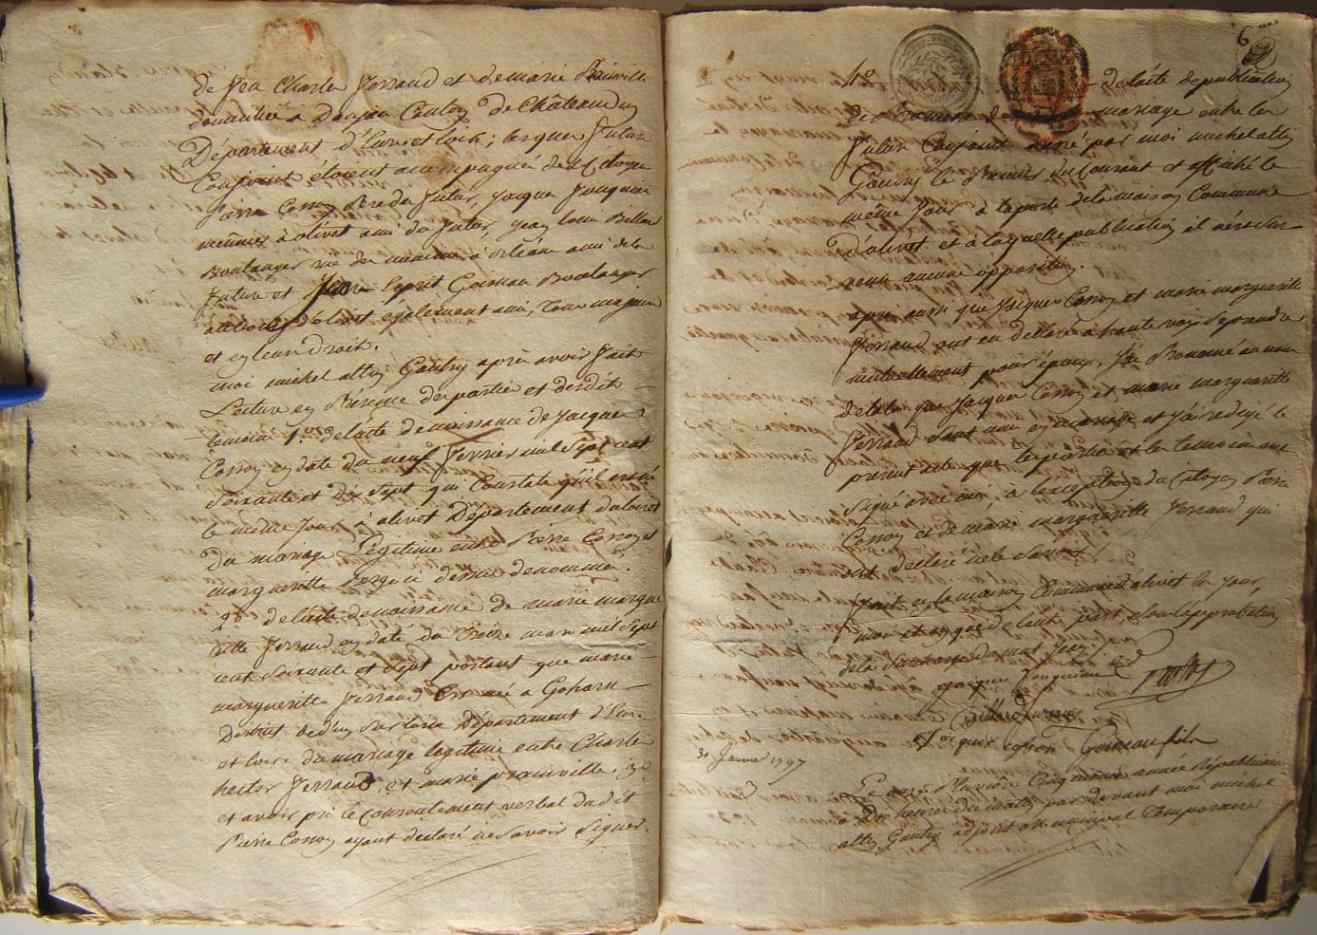 De feu Charle ferraud et de marie Prinville
domicilié a Canton De Châteaudun
Département d'Eure et loir ; lesquels futur
Conjoint étoient accompagnée des Citoyen
Pierre Cosson Pere du futur, Jacque Jouquin
meûnier à olivet ami du futur, jean louis Billon
Boulanger rue à orléan ami de la
future et Pierre Esprit Goineau Boulanger
au bourg d'olivet également ami, tous majeur
et en leurs Droit.
moi michel altin Gaudry après avoir fait
Lecture en Présence des partie et desdits
temoins 1° de lacte de naissance de Jacque
Cosson en date du neuf fevrier mil sept cent
Soixante et dix Sept qui Constate qu'il est né
le meême Jour à olivet Département du loiret
Du mariage légitime entre Pierre Cosson et
margueritte Berge ci dessus denommé.
2° de lacte de naissance de marie margue
ritte ferraud en date du treize mars mil Sept
cent Soixante et Sept portant que marie
marguerite ferraud est née a Gohorri
District Département d'Eure
et loire du mariage légitime entre Charle
hector ferraud et marie prainville. 3°
et avoir pri le Consentement verbal du dit
Pierre Cosson ayant declaré ne Savoir Signer.
6
4° de lacte de publication
de Promesse de mariage entre les
futur Conjoint par moi michel altin
Gaudry le Premier du Courant et affiché le
même Jour à la porte de la maison Commune
d'olivet et à laquelle publication il n'est sur
venu aucune opposition.
après aussi que Jacque Cosson et marie marguerite
ferraud ont eu declaré à haute voix Se prendre
mutuellement pour époux, J'ai Prononcé au nom
de la loi que Jacque Cosson et marie margueritte
ferraud Sont unis en mariage et J'ai redigé le
present acte que les parties et les temoins ont
Signé avec moi, à lexception du Citoyen Pierre
Cosson et de marie margueritte ferraud qui
ont declaré ne le Savoir.
fait en la maison Commune d'olivet les jour,
moi et an que d'autre part, Sous lapprobation
de la
jacque Jouquin
Billon
Jacque cosson Goineau fils
30 Janvier 1797
Le onze Pluviôse Cinquieme année Républicaine
à Dix heures du matin par devant moi michel
altin Gaudry adjoint municipal Temporaire